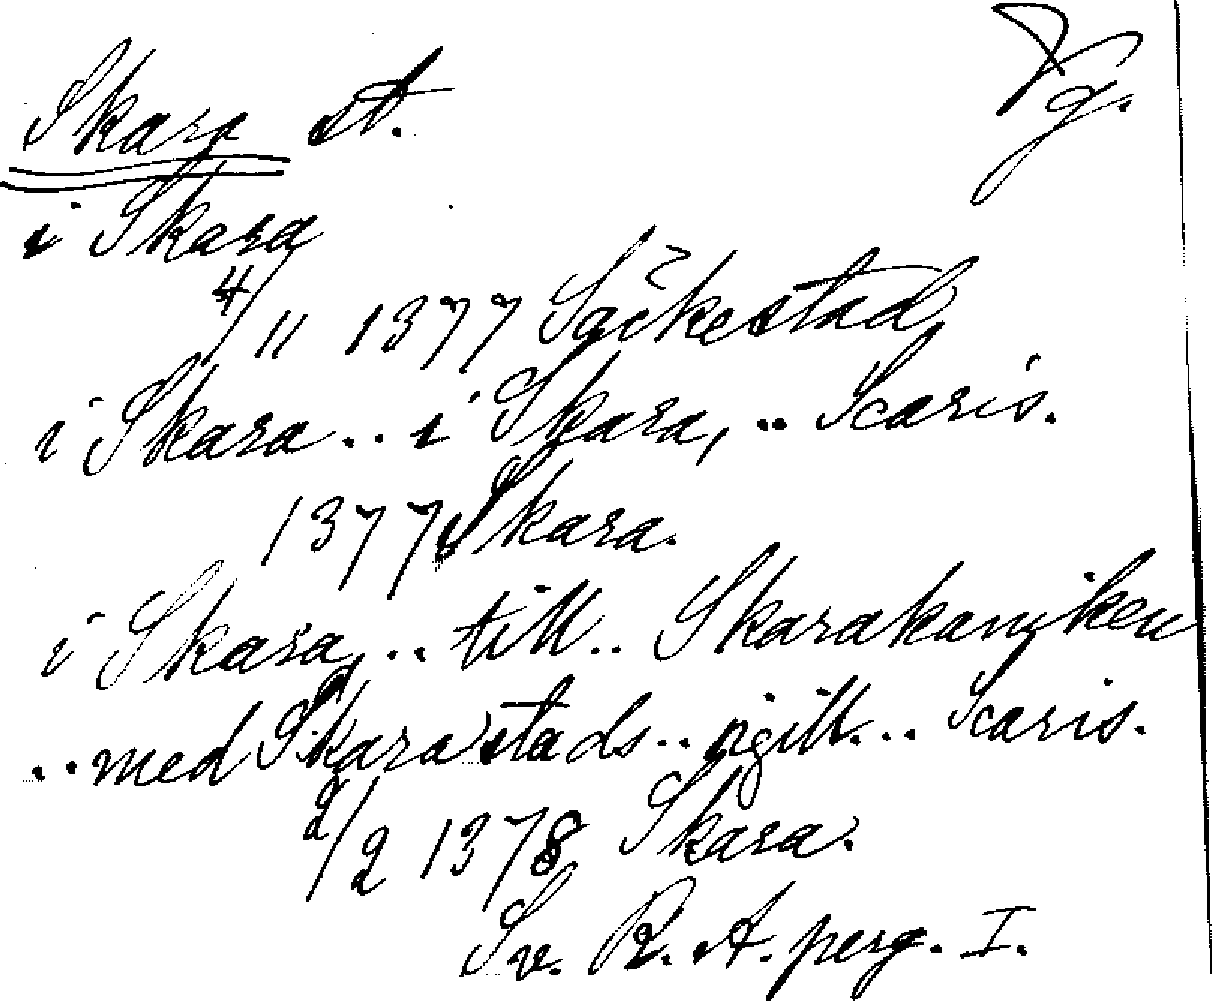 Skara st. Vg.
i Skara
4/11 1377 Säckestad,
i Skara .. i Skara, .. Scaris.
1377 Skara.
i Skara, .. till .. Skarakaniken
.. med Skara stads .. .. Scaris.
2/2 1378 Skara.
Sv. R. A. perg. I.